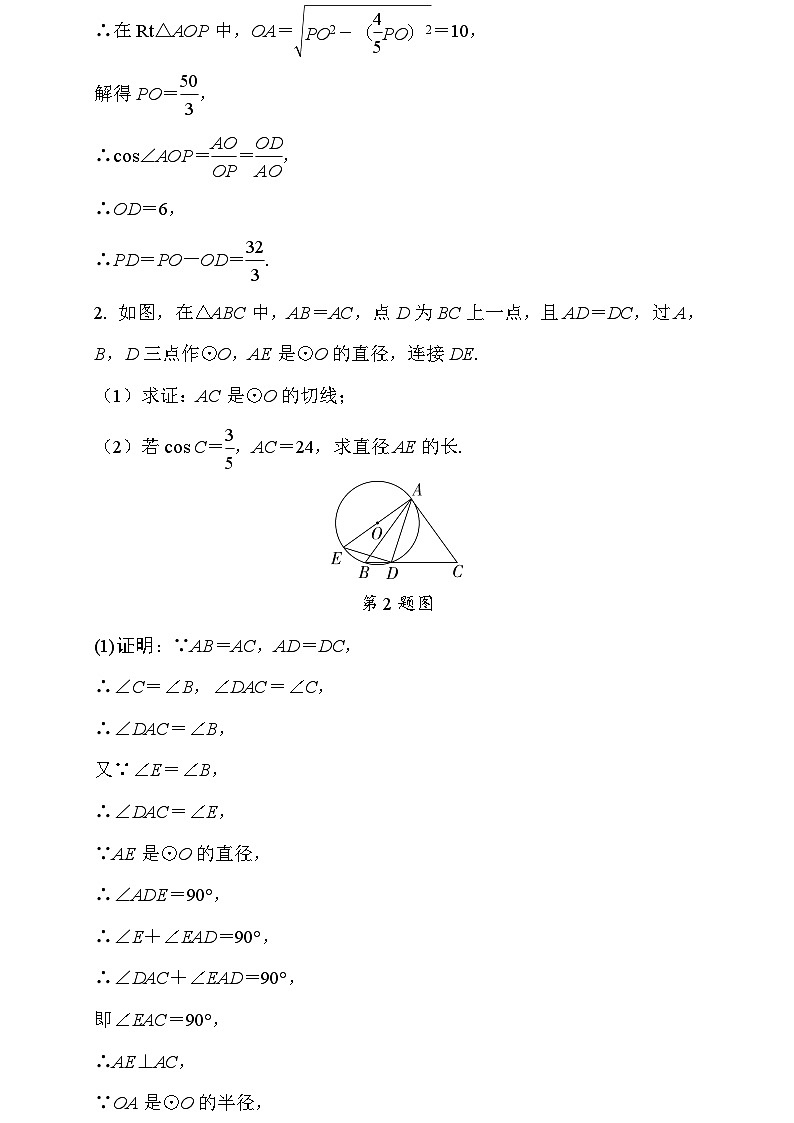 ∴在Rt△AOP中，OA=√(PO²-（4/5PO）²)=10，
解得PO=50/3，
∴cos∠AOP=AO/OP=OD/AO，
∴OD=6，
∴PD=PO-OD=32/3.
2. 如图，在△ABC中，AB=AC，点D为BC上一点，且AD=DC，过A，
B，D三点作⊙O，AE是⊙O的直径，连接DE.
（1）求证：AC是⊙O的切线；
（2）若cos C=3/5，AC=24，求直径AE的长.
A
O
E
B D C
第2题图
(1)证明：∵AB=AC，AD=DC，
∴∠C=∠B，∠DAC=∠C，
∴∠DAC=∠B，
又∵∠E=∠B，
∴∠DAC=∠E，
∵AE是⊙O的直径，
∴∠ADE=90°，
∴∠E+∠EAD=90°，
∴∠DAC+∠EAD=90°，
即∠EAC=90°，
∴AE⊥AC，
∵OA是⊙O的半径，